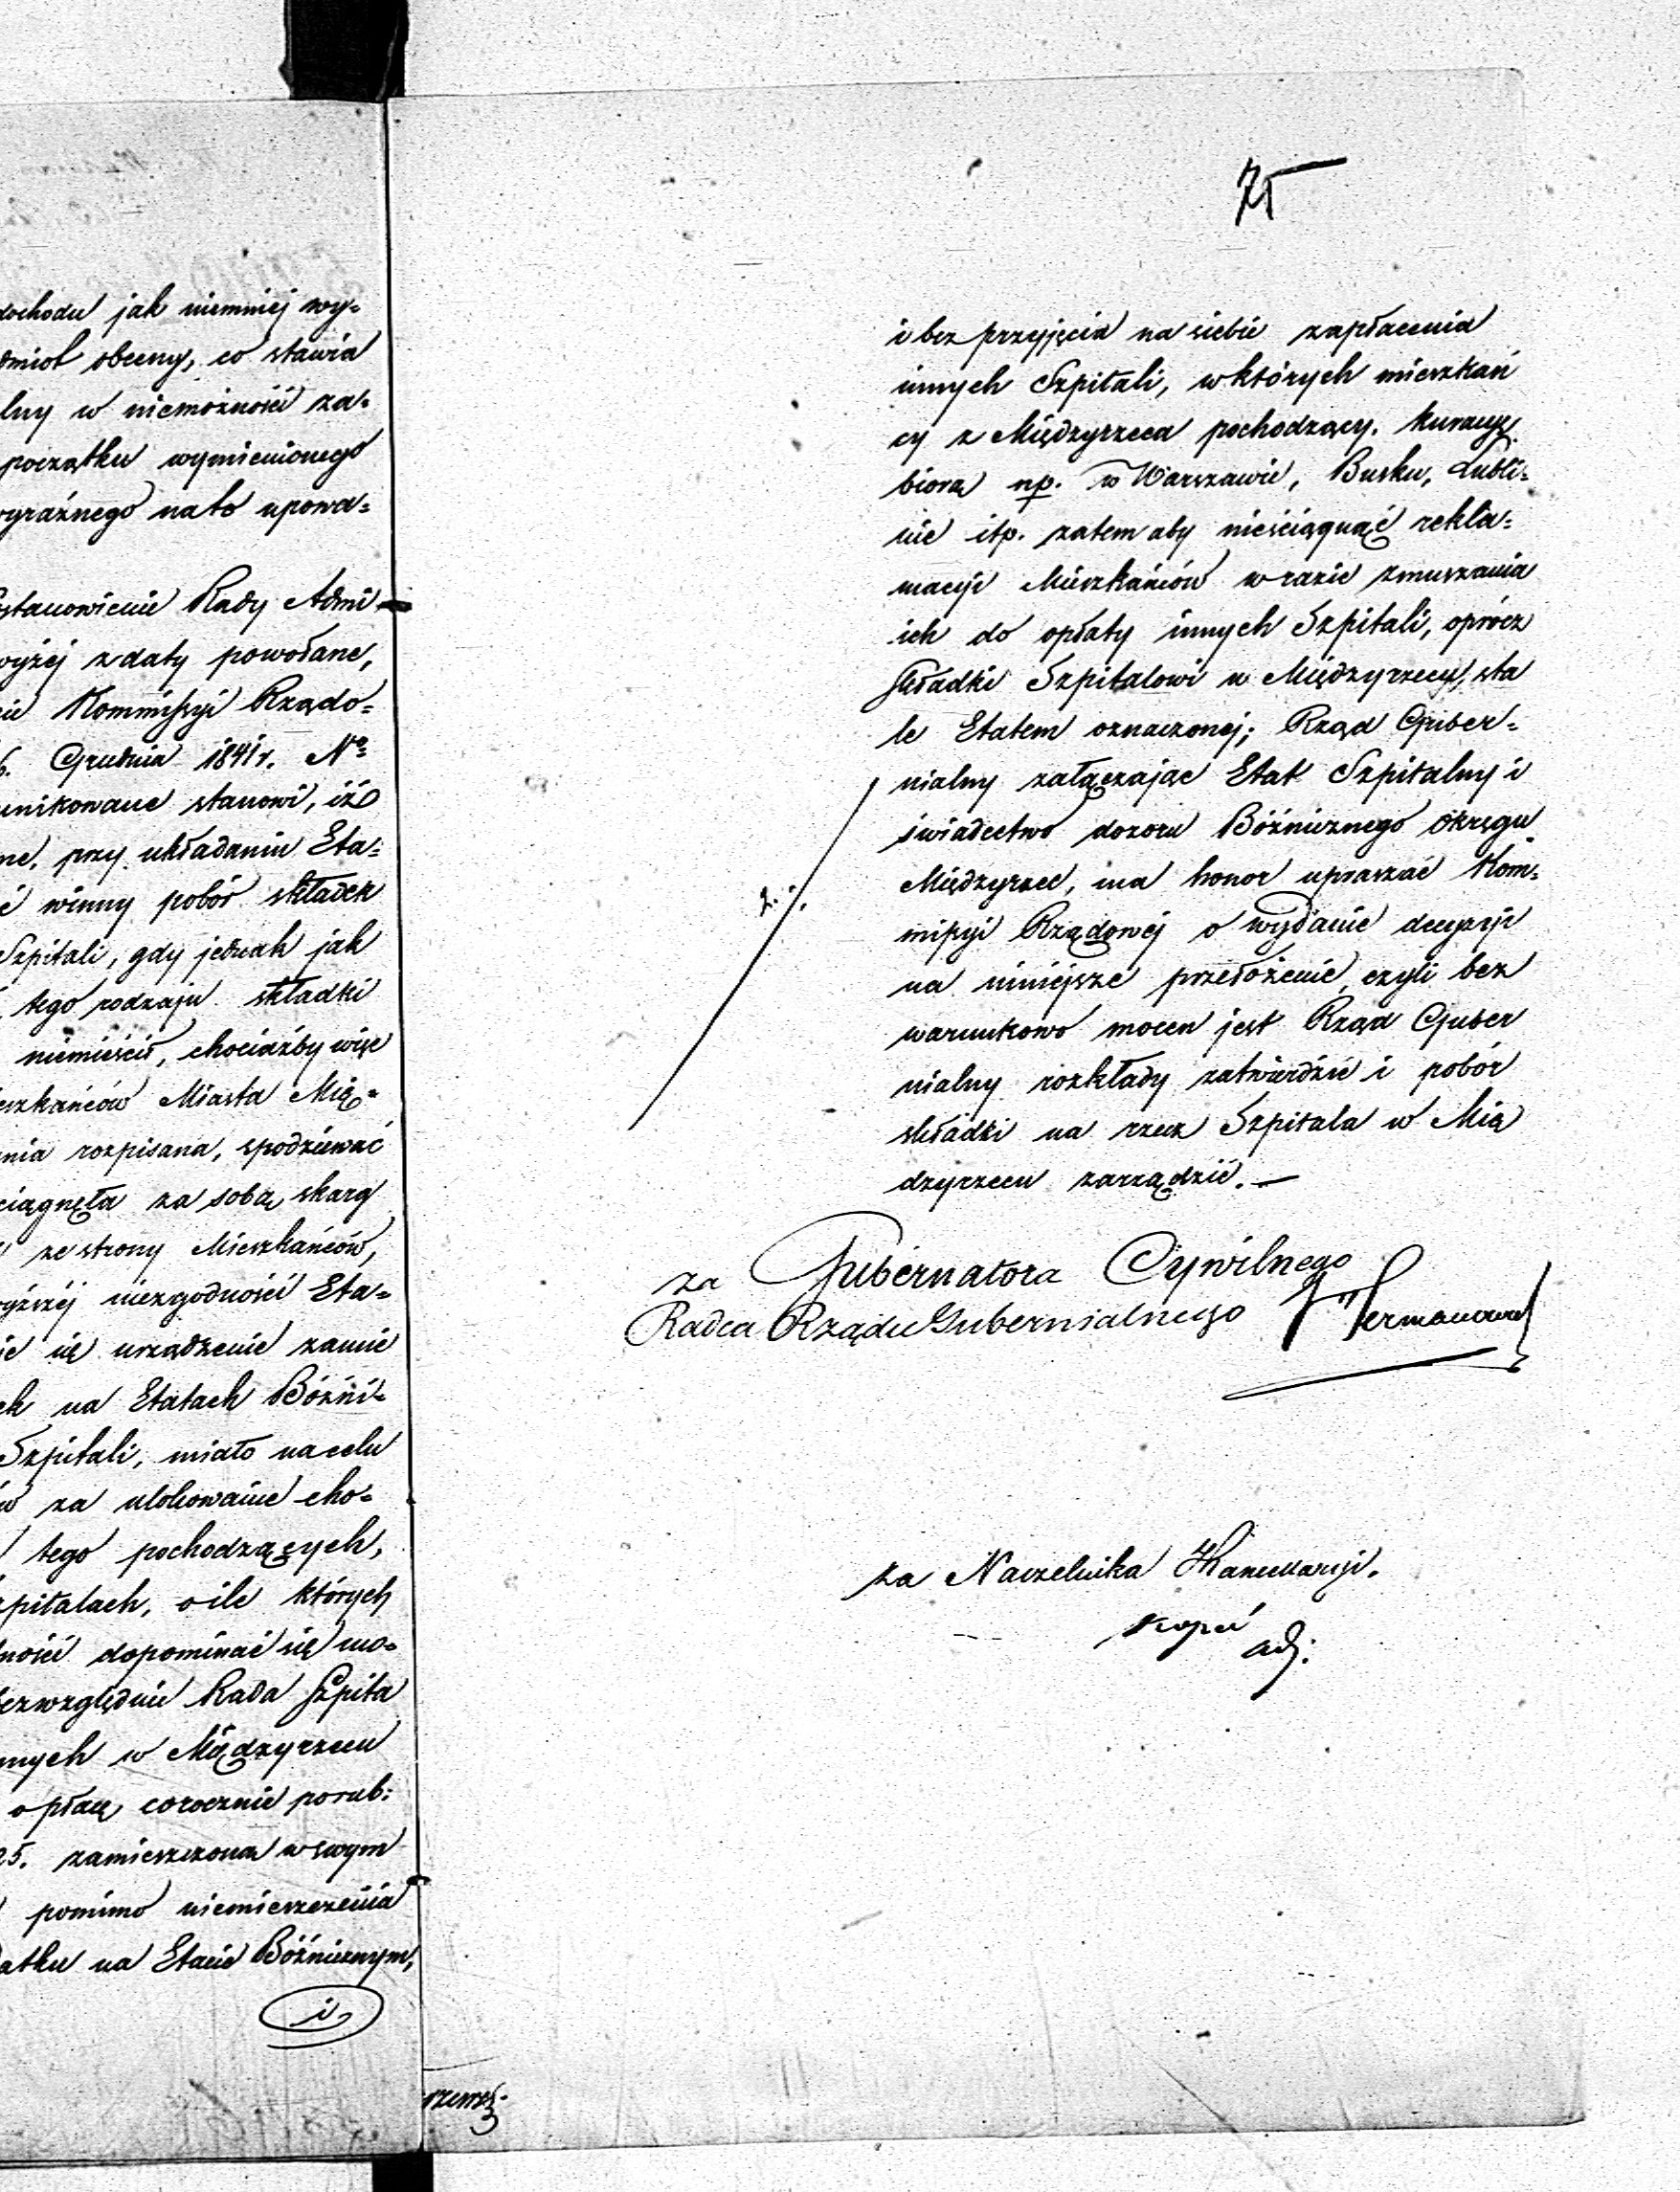 dochodu jak niemniej wy=
dmiot obecny, co stawia
lny w niemożności za=
początku wymienionego
yraźnego na to upowa=
ostanowienie Rady Admi
wyżej z daty powołane,
Kommissyi Rządo=
6. Grudnia 1841 r. No
unikowane stanowi, iż
ne, przy układaniu Eta=
ć winny pobór składek
Szpitali, gdy jednak jak
tego rodzaju składki
niemieścił, chociażby więc
eszkańców Miasta Mię=
nia rozpisana, spodziewać
ciągnęła za sobą skarg
ze strony Mieszkańców,
yższej niezgodności Eta=
ie się urządzenie zamie
ek na Etatach Bóźni=
Szpitali, miało na celu
w za ulokowanie cho=
tego pochodzących,
zpitalach, o ile których
ności dopominać się mo=
bezwzględnie Rada Szpita
nnych w Międzyrzecu
opłacę corocznie porub:
25. zamieszczona w swym
pomimo niemieszczenia
datku na Etacie Bóźnicznym,
i
75
i bez przyjęcia na siebie zapłacenia
innych Szpitali, w których mieszkań
cy z Międzyrzeca pochodzący, kuracyę
biorą np. w Warszawie, Busku, Lubli=
nie itp. zatem aby nieściągnąć rekla=
macyi Mieszkańców w razie zmuszania
ich do opłaty innych Szpitali, oprócz
składki Szpitalowi w Międzyrzecu, sta
le Etatem oznaczonej; Rząd Guber=
nialny załączając Etat Szpitalny i
świadectwo dozoru Bóźnicznego Okręgu
Międzyrzec, ma honor upraszać Kom=
missyi Rządowej o wydanie decyzyi
na niniejsze przełożenie, czyli bez
warunkowo mocen jest Rząd Guber
nialny rozkłady zatwierdzić i pobór
składki na rzecz Szpitala w Mię
dzyrzecu zarządzić. —
2.
za Gubernatora Cywilnego
Radca Rządu Gubernialnego
za Naczelnika Kancellaryi.
adj: